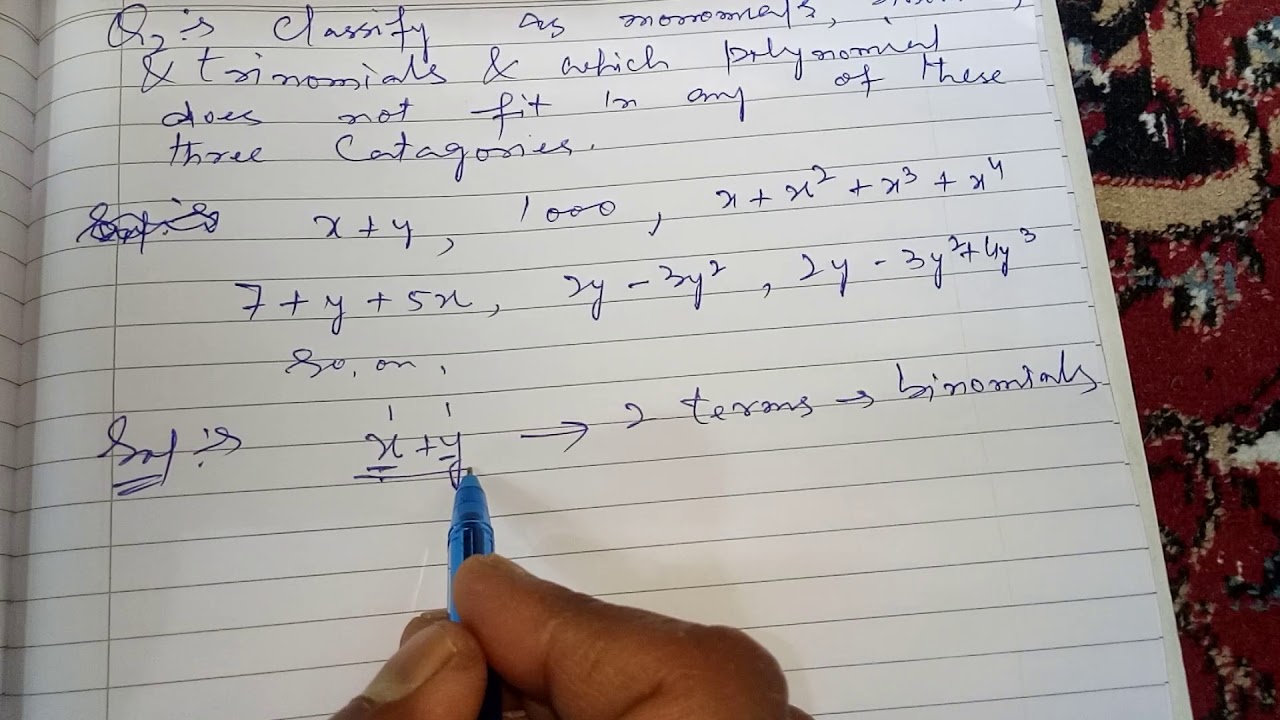 Q2 :- Classify as monomials,
& trinomials & which polynomial
does not fit in any of these
three Catagories.
x + y, 1000, x + x² + x³ + x⁴
7 + y + 5x, 2y - 3y², 2y - 3y² + 4y³
So, on,
1 1
Sol :- x + y → 2 terms → binomials